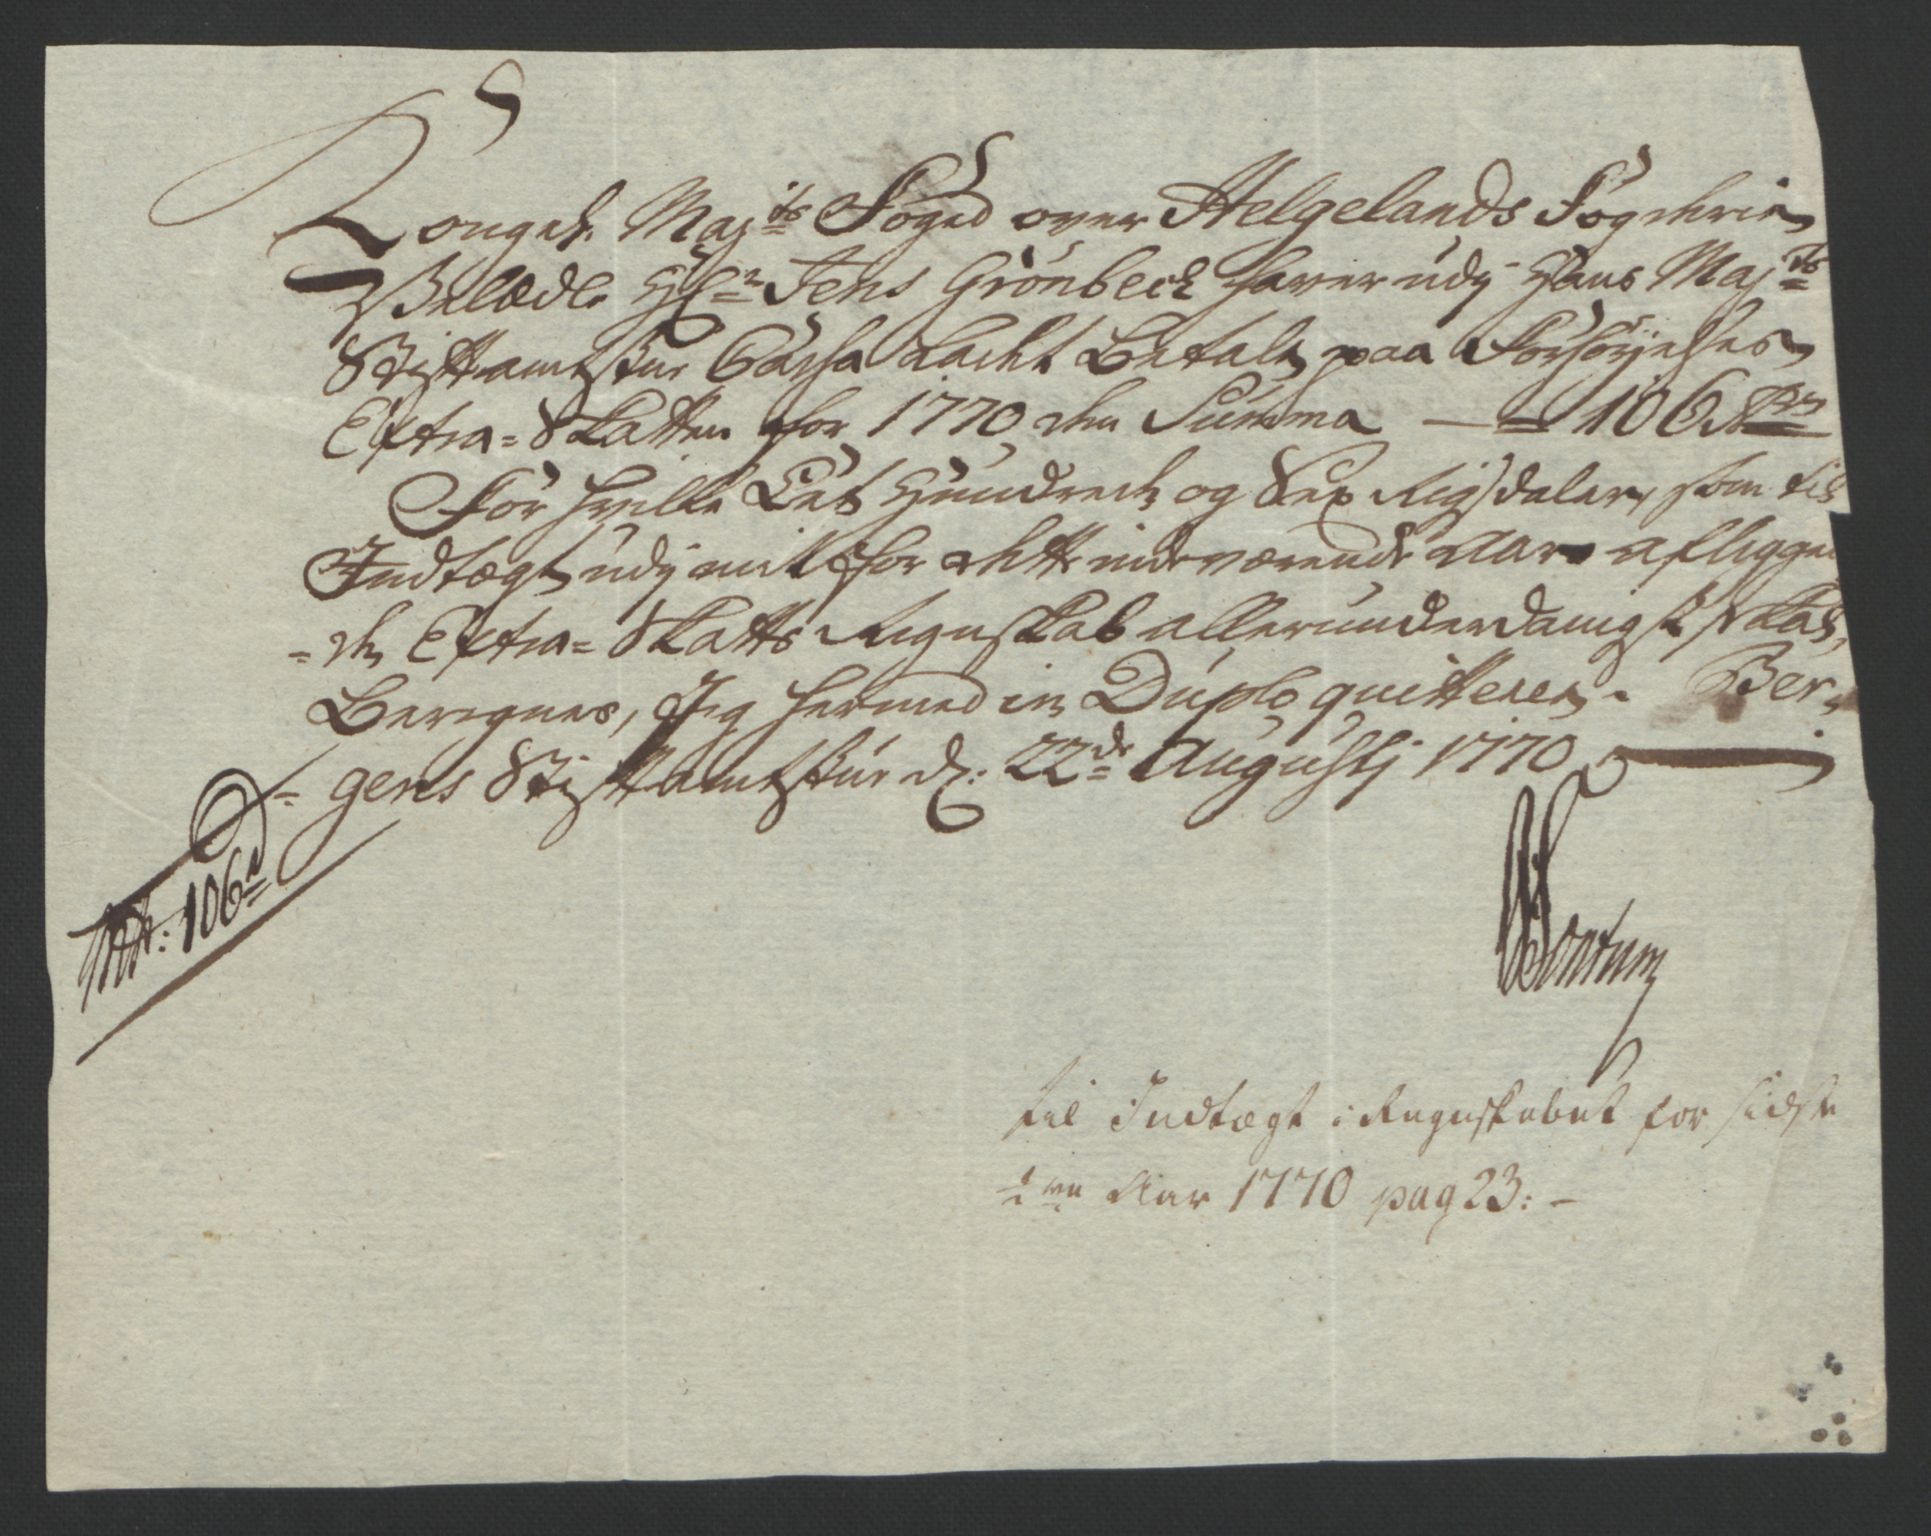 Kongel. Maj:ts Foged over Helgelands Fogderie
Velædle Hr. Jens Grönbeck haver udj Hans Maj:ts
Stiftamtstue Cassa ladet Betale paa
Extra-Skatten for 1770 den Summa — 106 Rdr
For hvilke Eet Hundrede og Sex Rigsdaler, som til
Indtægt udj mit for dette indeværende Aar aflæggen
=de Extra-Skatts Regnskab allerunderdanigst skal
Beregnes, Jeg hermed in Duplo quitterer. Ber,
=gens Stiftamtstue d: 22de Augustj 1770
Rdr: 106
til Indtægt i Regnskabet for sidste
1/2 Aar 1770 pag 23: –